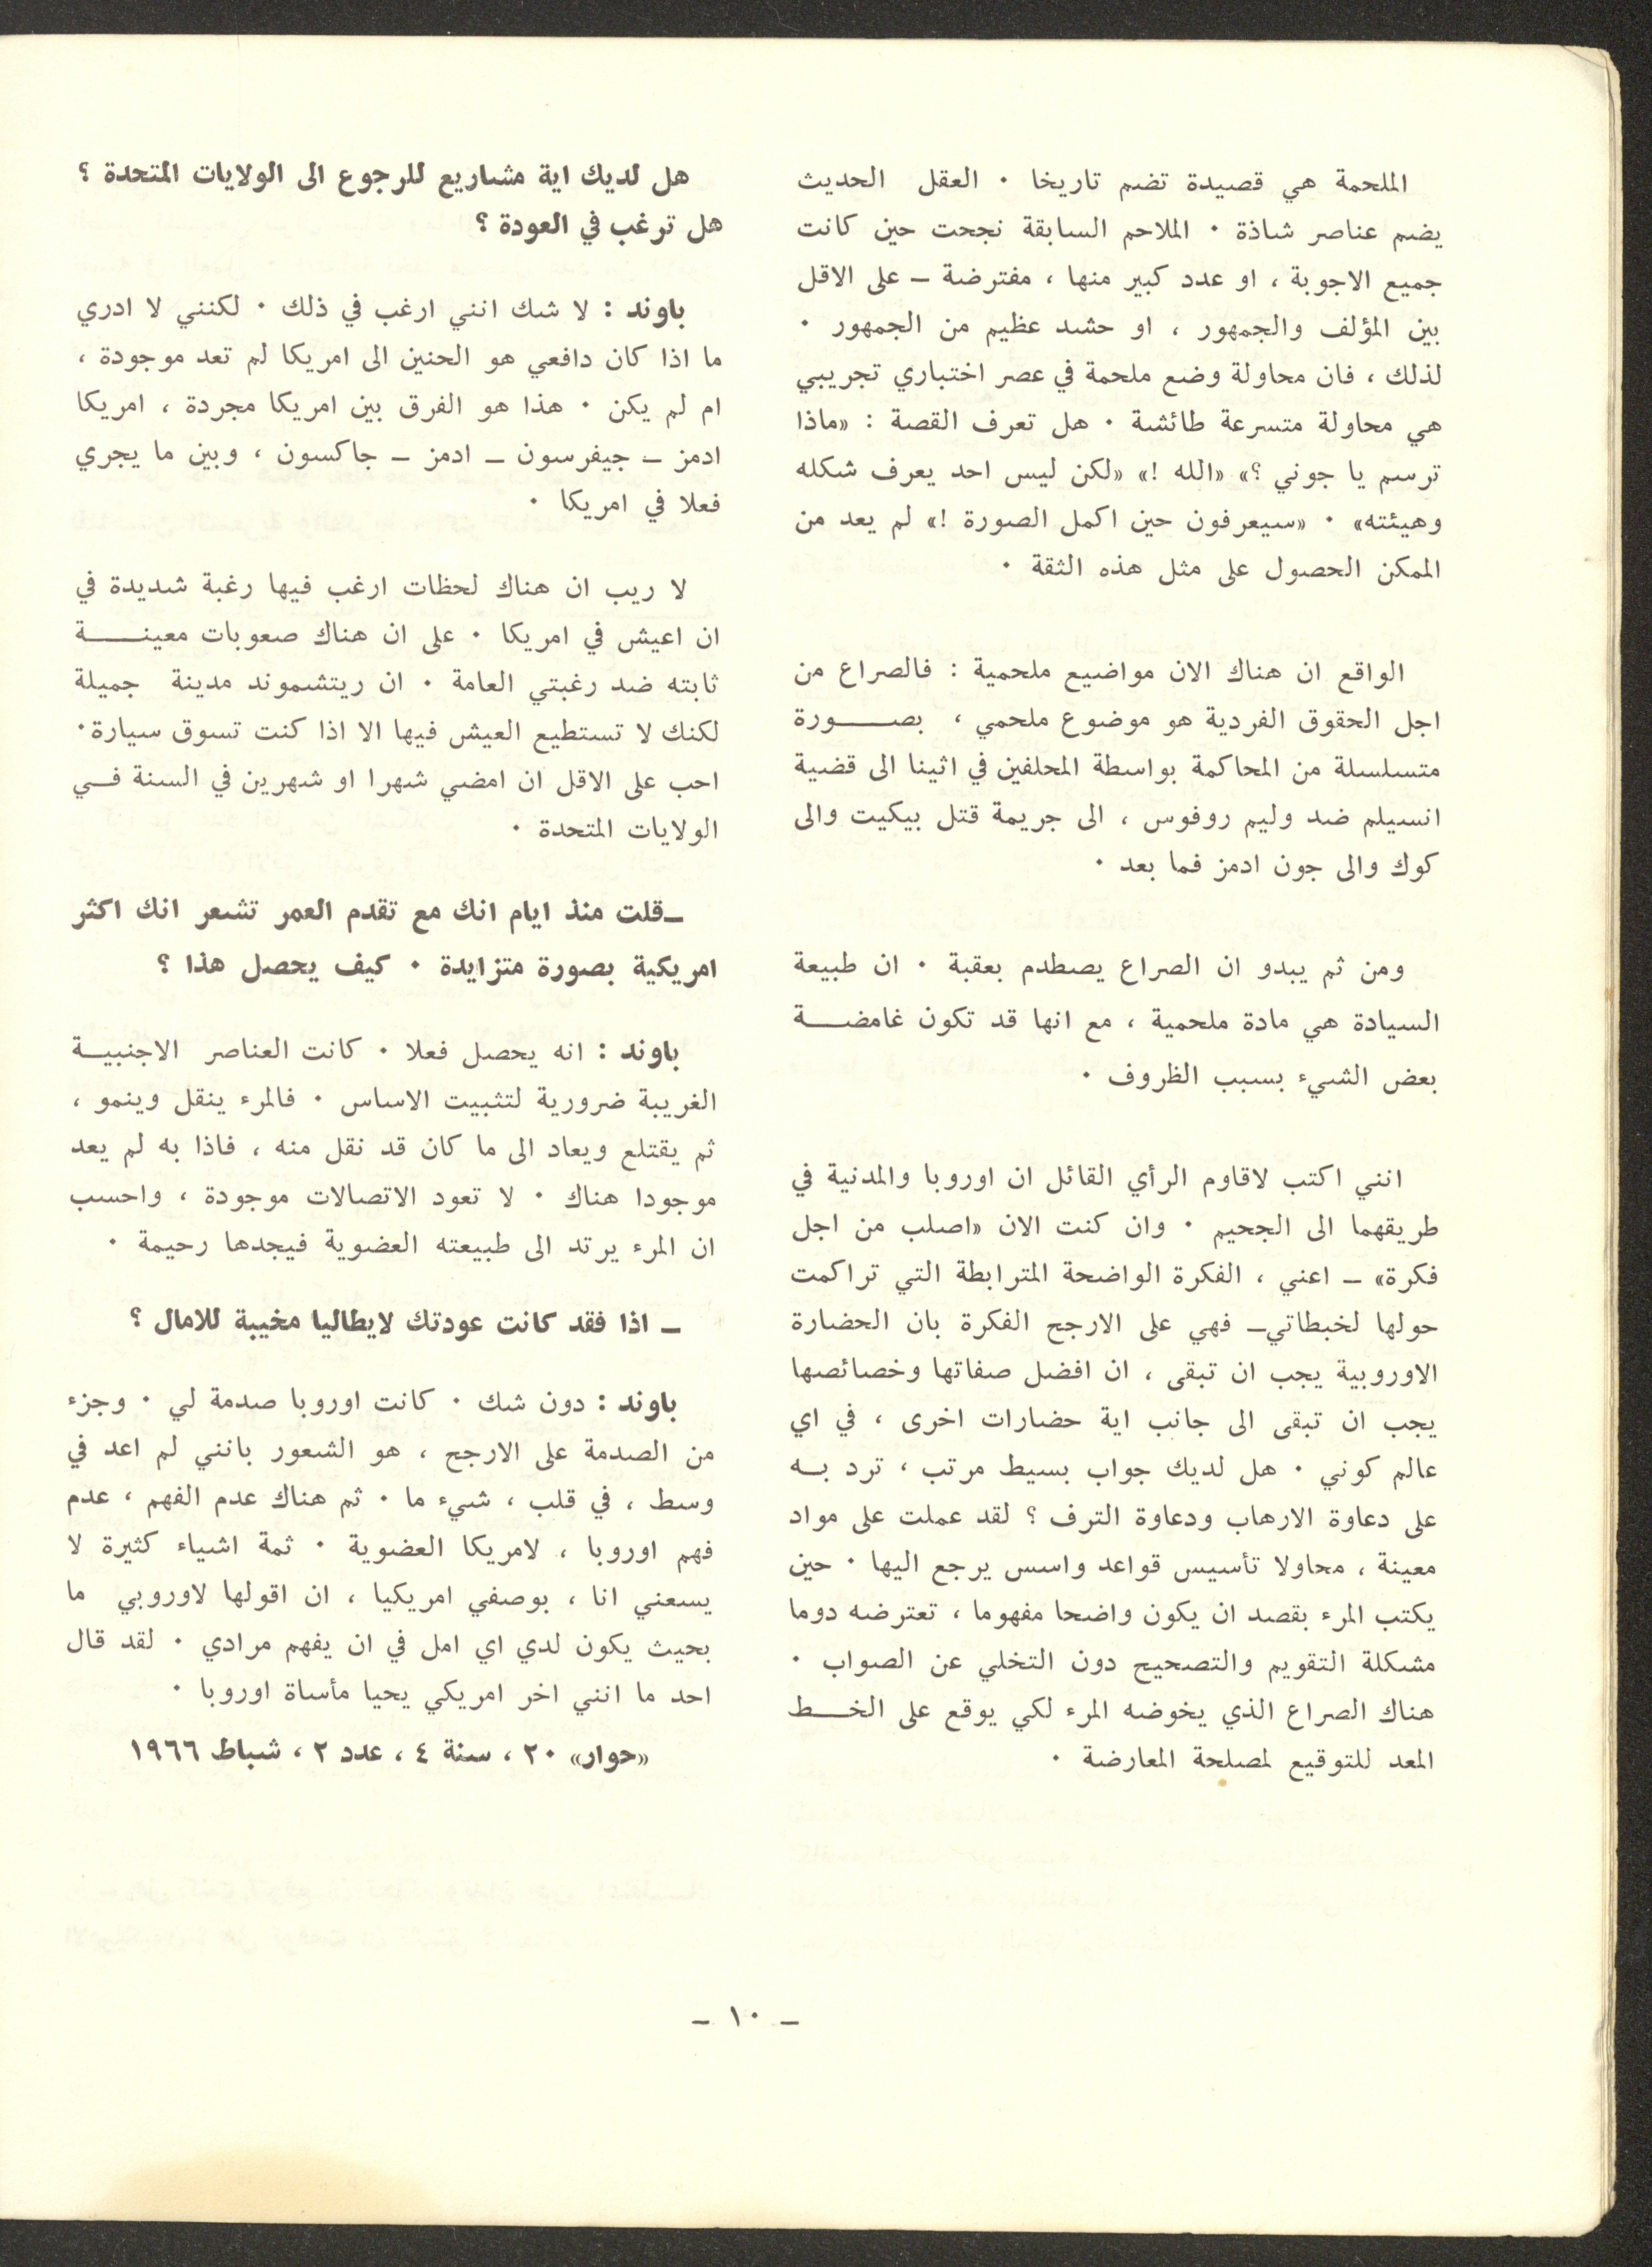 الملحمة هي قصيدة تضم تاريخا ٠ العقل الحديث
يضم عناصر شاذة ٠ الملاحم السابقة نجحت حين كانت
جميع الاجوبة ، او عدد كبير منها ، مفترضة ــ على الاقل
بين المؤلف والجمهور ، او حشد عظيم من الجمهور ٠
لذلك ، فان محاولة وضع ملحمة في عصر اختباري تجريبي
هي محاولة متسرعة طائشة ٠ هل تعرف القصة : «ماذا
ترسم يا جوني ؟» «الله !» «لكن ليس احد يعرف شكله
وهيئته» ٠ «سيعرفون حين اكمل الصورة !» لم يعد من
الممكن الحصول على مثل هذه الثقة ٠
الواقع ان هناك الان مواضيع ملحمية : فالصراع من
اجل الحقوق الفردية هو موضوع ملحمي ، بصـــورة
متسلسلة من المحاكمة بواسطة المحلفين في اثينا الى قضية
انسيلم ضد وليم روفوس ، الى جريمة قتل بيكيت والى
كوك والى جون ادمز فما بعد ٠
ومن ثم يبدو ان الصراع يصطدم بعقبة ٠ ان طبيعة
السيادة هي مادة ملحمية ، مع انها قد تكون غامضـــة
بعض الشيء بسبب الظروف ٠
انني اكتب لاقاوم الرأي القائل ان اوروبا والمدنية في
طريقهما الى الجحيم ٠ وان كنت الان «اصلب من اجل
فكرة» ــ اعني ، الفكرة الواضحة المترابطة التي تراكمت
حولها لخبطاتي ــ فهي على الارجح الفكرة بان الحضارة
الاوروبية يجب ان تبقى ، ان افضل صفاتها وخصائصها
يجب ان تبقى الى جانب اية حضارات اخرى ، في اي
عالم كوني ٠ هل لديك جواب بسيط مرتب ، ترد بــه
على دعاوة الارهاب ودعاوة الترف ؟ لقد عملت على مواد
معينة ، محاولا تأسيس قواعد واسس يرجع اليها ٠ حين
يكتب المرء بقصد ان يكون واضحا مفهوما ، تعترضه دوما
مشكلة التقويم والتصحيح دون التخلي عن الصواب ٠
هناك الصراع الذي يخوضه المرء لكي يوقع على الخـــط
المعد للتوقيع لمصلحة المعارضة ٠
هل لديك اية مشاريع للرجوع الى الولايات المتحدة ؟
هل ترغب في العودة ؟
باوند : لا شك انني ارغب في ذلك ٠ لكنني لا ادري
ما اذا كان دافعي هو الحنين الى امريكا لم تعد موجودة ،
ام لم يكن ٠ هذا هو الفرق بين امريكا مجردة ، امريكا
ادمز ــ جيفرسون ــ ادمز ــ جاكسون ، وبين ما يجري
فعلا في امريكا ٠
لا ريب ان هناك لحظات ارغب فيها رغبة شديدة في
ان اعيش في امريكا ٠ على ان هناك صعوبات معينـــة
ثابته ضد رغبتي العامة ٠ ان ريتشموند مدينة جميلة
لكنك لا تستطيع العيش فيها الا اذا كنت تسوق سيارة٠
احب على الاقل ان امضي شهرا او شهرين في السنة فــي
الولايات المتحدة ٠
ــ قلت منذ ايام انك مع تقدم العمر تشعر انك اكثر
امريكية بصورة متزايدة ٠ كيف يحصل هذا ؟
باوند : انه يحصل فعلا ٠ كانت العناصر الاجنبيــة
الغريبة ضرورية لتثبيت الاساس ٠ فالمرء ينقل وينمو ،
ثم يقتلع ويعاد الى ما كان قد نقل منه ، فاذا به لم يعد
موجودا هناك ٠ لا تعود الاتصالات موجودة ، واحسب
ان المرء يرتد الى طبيعته العضوية فيجدها رحيمة ٠
ــ اذا فقد كانت عودتك لايطاليا مخيبة للامال ؟
باوند : دون شك ٠ كانت اوروبا صدمة لي ٠ وجزء
من الصدمة على الارجح ، هو الشعور بانني لم اعد في
وسط ، في قلب ، شيء ما ٠ ثم هناك عدم الفهم ، عدم
فهم اوروبا ، لامريكا العضوية ٠ ثمة اشياء كثيرة لا
يسعني انا ، بوصفي امريكيا ، ان اقولها لاوروبي ما
بحيث يكون لدي اي امل في ان يفهم مرادي ٠ لقد قال
احد ما انني اخر امريكي يحيا مأساة اوروبا ٠
«حوار» ٢٠ ، سنة ٤ ، عدد ٢ ، شباط ١٩٦٦
ــ ١٠ ــ